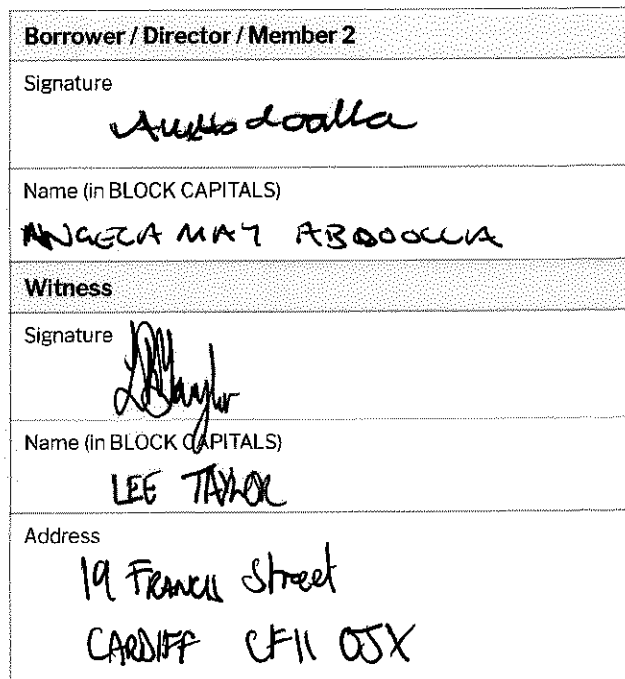 Borrower / Director / Member 2
Signature
Name (in BLOCK CAPITALS)
ANGELA MAY ABDOOLLA
Witness
Signature
Name (in BLOCK CAPITALS)
LEE TAYLOR
Address
19 FRANCIS Street
CARDIFF CF11 0JX